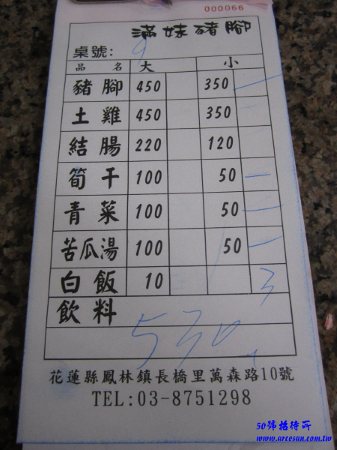 000066
滿妹豬腳
桌號: 9
品名 大 小
豬腳 450 350 一
土雞 450 350
結腸 220 120
筍干 100 50 一
青菜 100 50 一
苦瓜湯 100 50 一
白飯 10 3
飲料
530
花蓮縣鳳林鎮長橋里萬森路10號
TEL:03-8751298
50號招待所
www.arcesun.com.tw